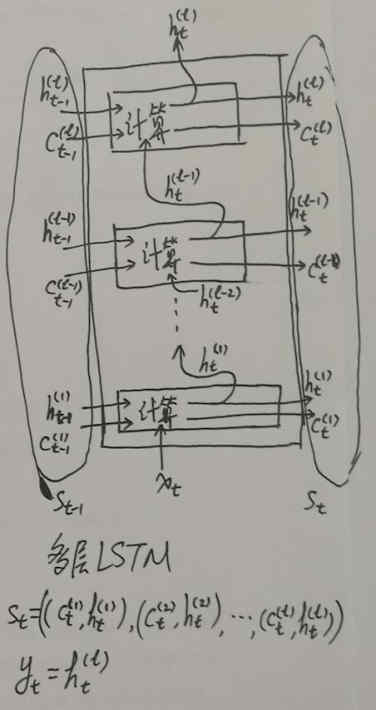 h_t^{(l)}
h_{t-1}^{(l)} h_t^{(l)}
计算
C_{t-1}^{(l)} C_t^{(l)}
h_t^{(l-1)}
h_{t-1}^{(l-1)} h_t^{(l-1)}
计算
C_{t-1}^{(l-1)} C_t^{(l-1)}
h_t^{(l-2)}
h_t^{(1)}
h_{t-1}^{(1)} h_t^{(1)}
计算
C_{t-1}^{(1)} C_t^{(1)}
x_t
S_{t-1} S_t
多层LSTM
S_t=((C_t^{(1)},h_t^{(1)}),(C_t^{(2)},h_t^{(2)}),…,(C_t^{(l)},h_t^{(l)}))
y_t=h_t^{(l)}